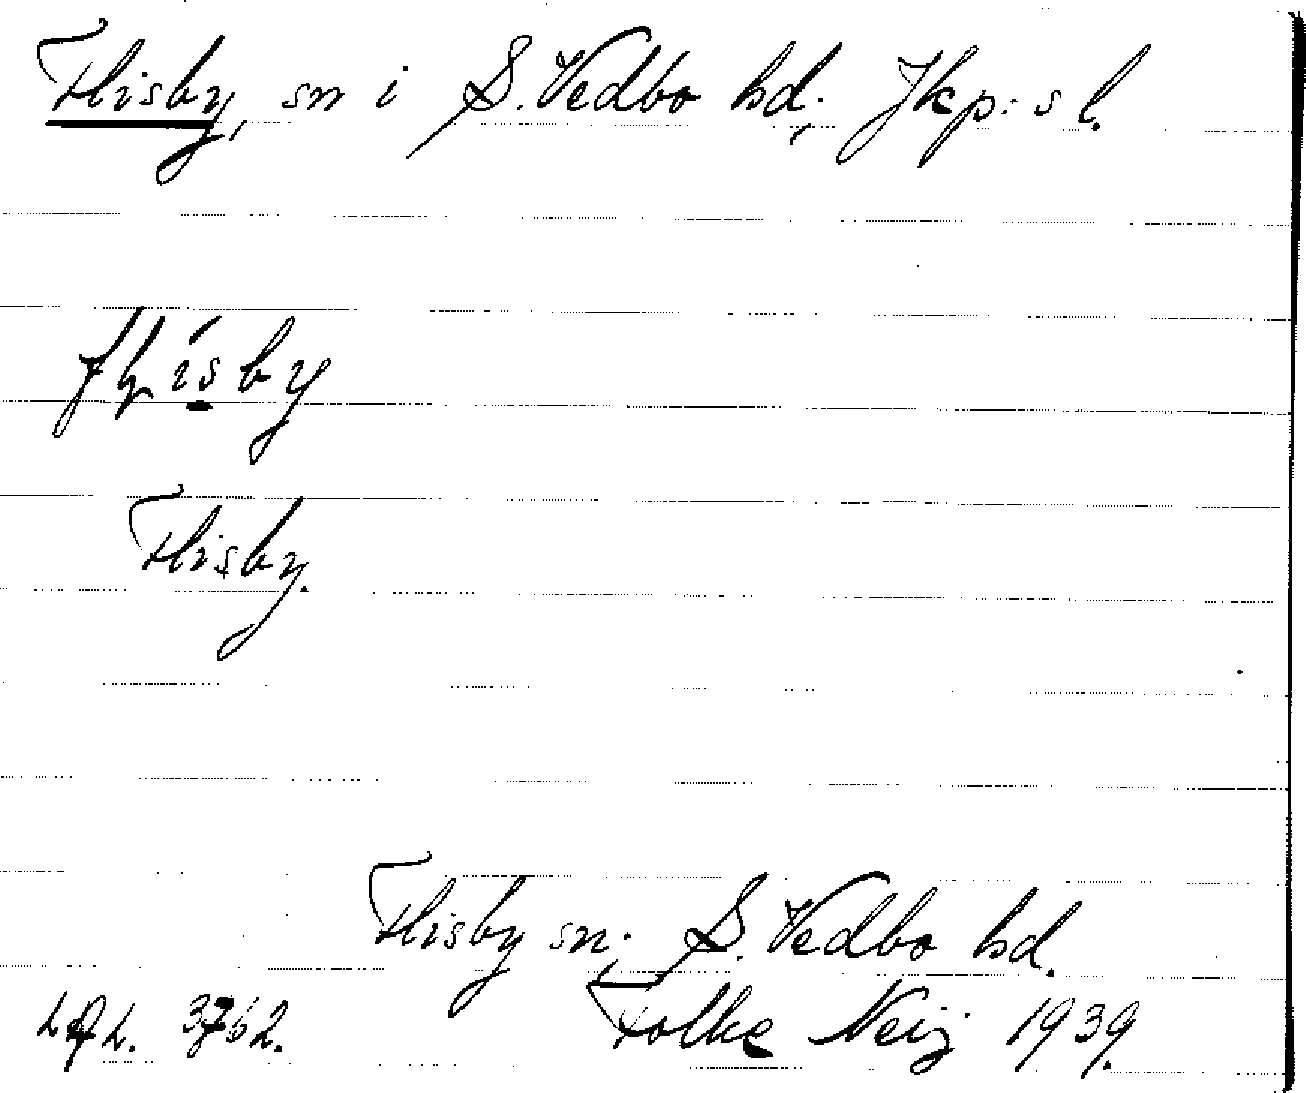 Flisby, sn i S. Vedbo hd. Jkp:s l.
flísby
Flisby.
Flisby sn. S. Vedbo hd.
3762. Folke Neij 1939.